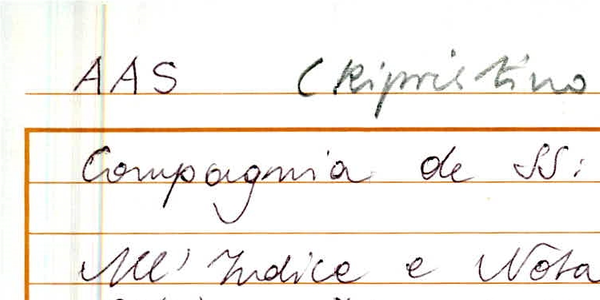 AAS (Ripristino
Compagnia de SS:
All' Indice e Nota